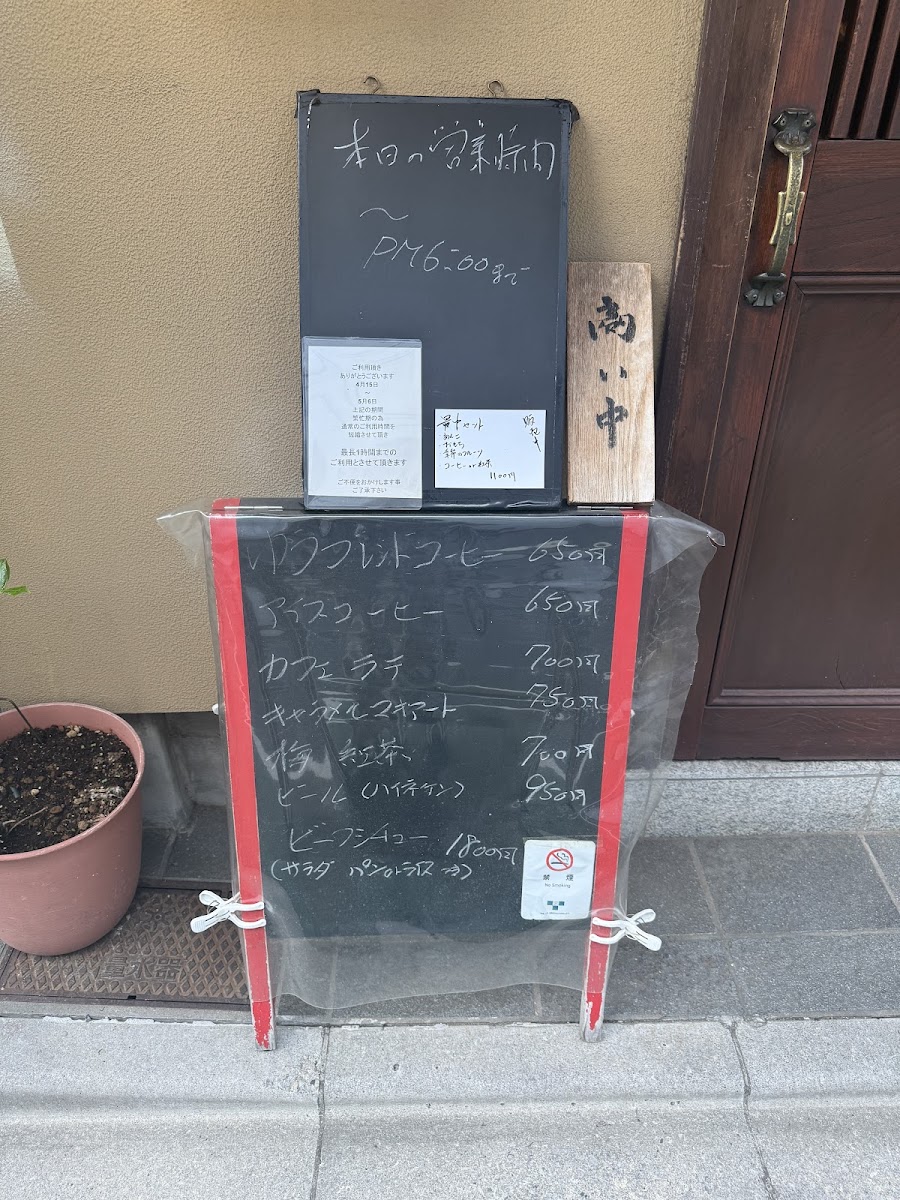 本日の営業時間
～
PM6:00まで
商い中
ご利用頂き
ありがとうございます
4月15日
～
5月6日
上記の期間
繁忙期の為
通常のご利用時間を
短縮させて頂き
最長1時間までの
ご利用とさせて頂きます
ご不便をおかけします事
ご了承下さい
セット
あんこ
おもち
季節のフルーツ
コーヒー or お茶
1100円
ゆうブレンドコーヒー 650円
アイスコーヒー 650円
カフェラテ 700円
キャラメルマキアート 750円
梅紅茶 700円
ビール(ハイネケン) 950円
ビーフシチュー 1800円
(サラダ パンorライス 付)
禁煙
No Smoking
量水器